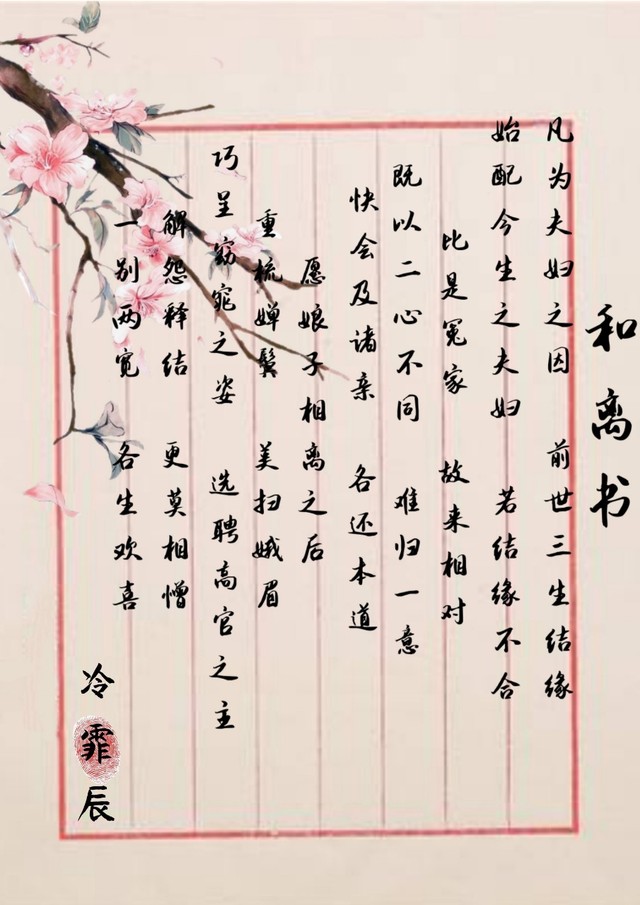 和离书
凡为夫妇之因 前世三生结缘
始配今生之夫妇 若结缘不合
比是冤家 故来相对
既以二心不同 难归一意
快会及诸亲 各还本道
愿娘子相离之后
重梳婵鬓 美扫娥眉
巧呈窈窕之姿 选聘高官之主
解怨释结 更莫相憎
一别两宽 各生欢喜
冷霏辰